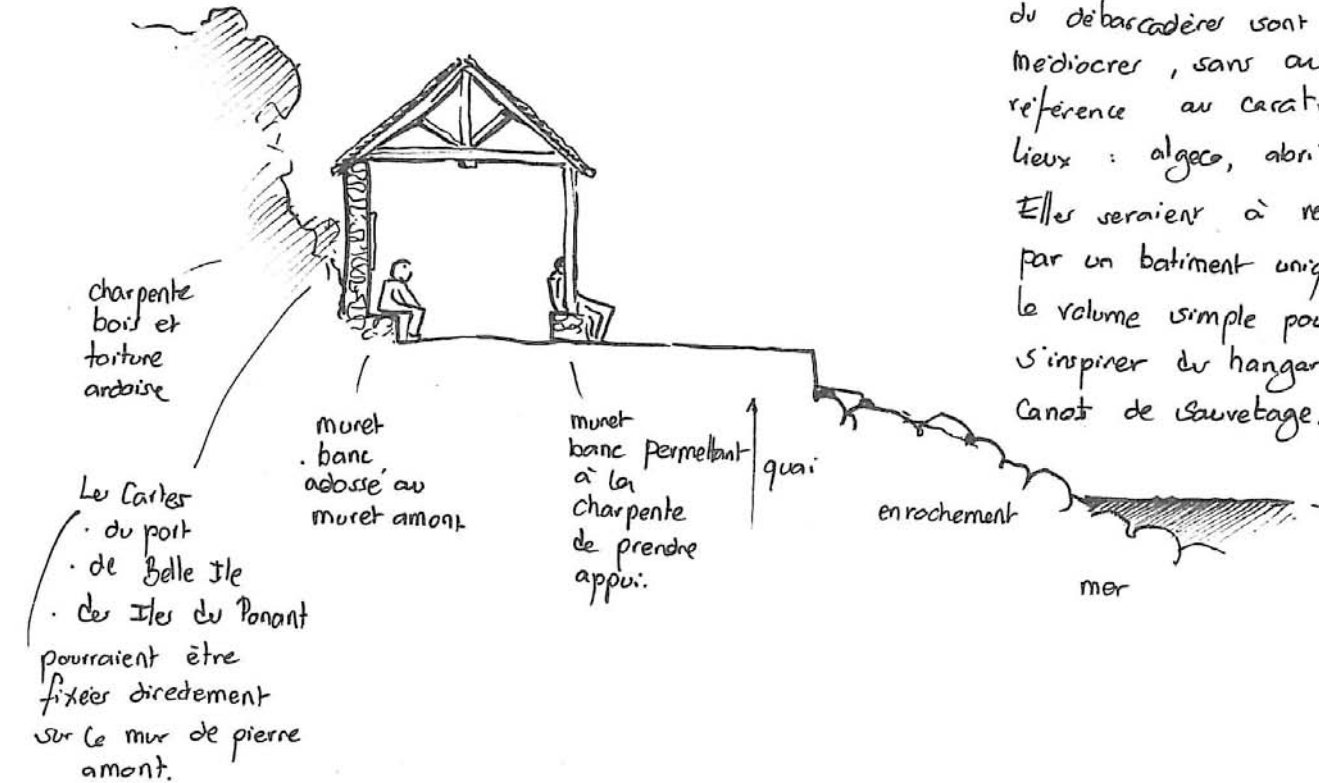 du débarcadères sont
médiocres, sans au
référence au carat
lieux : algeco, abri
Elles seraient à re
par un batiment uniq
le volume simple pou
s'inspirer du hangar
Canot de Sauvetage.
charpente
bois et
toiture
ardoise
muret
. banc
adossé au
muret amont
muret
banc permettant
à la
charpente
de prendre
appui.
quai
enrochement
mer
Les Cartes
. du port
. de Belle Ile
. des Iles du Ponant
pourraient être
fixées directement
sur ce mur de pierre
amont.